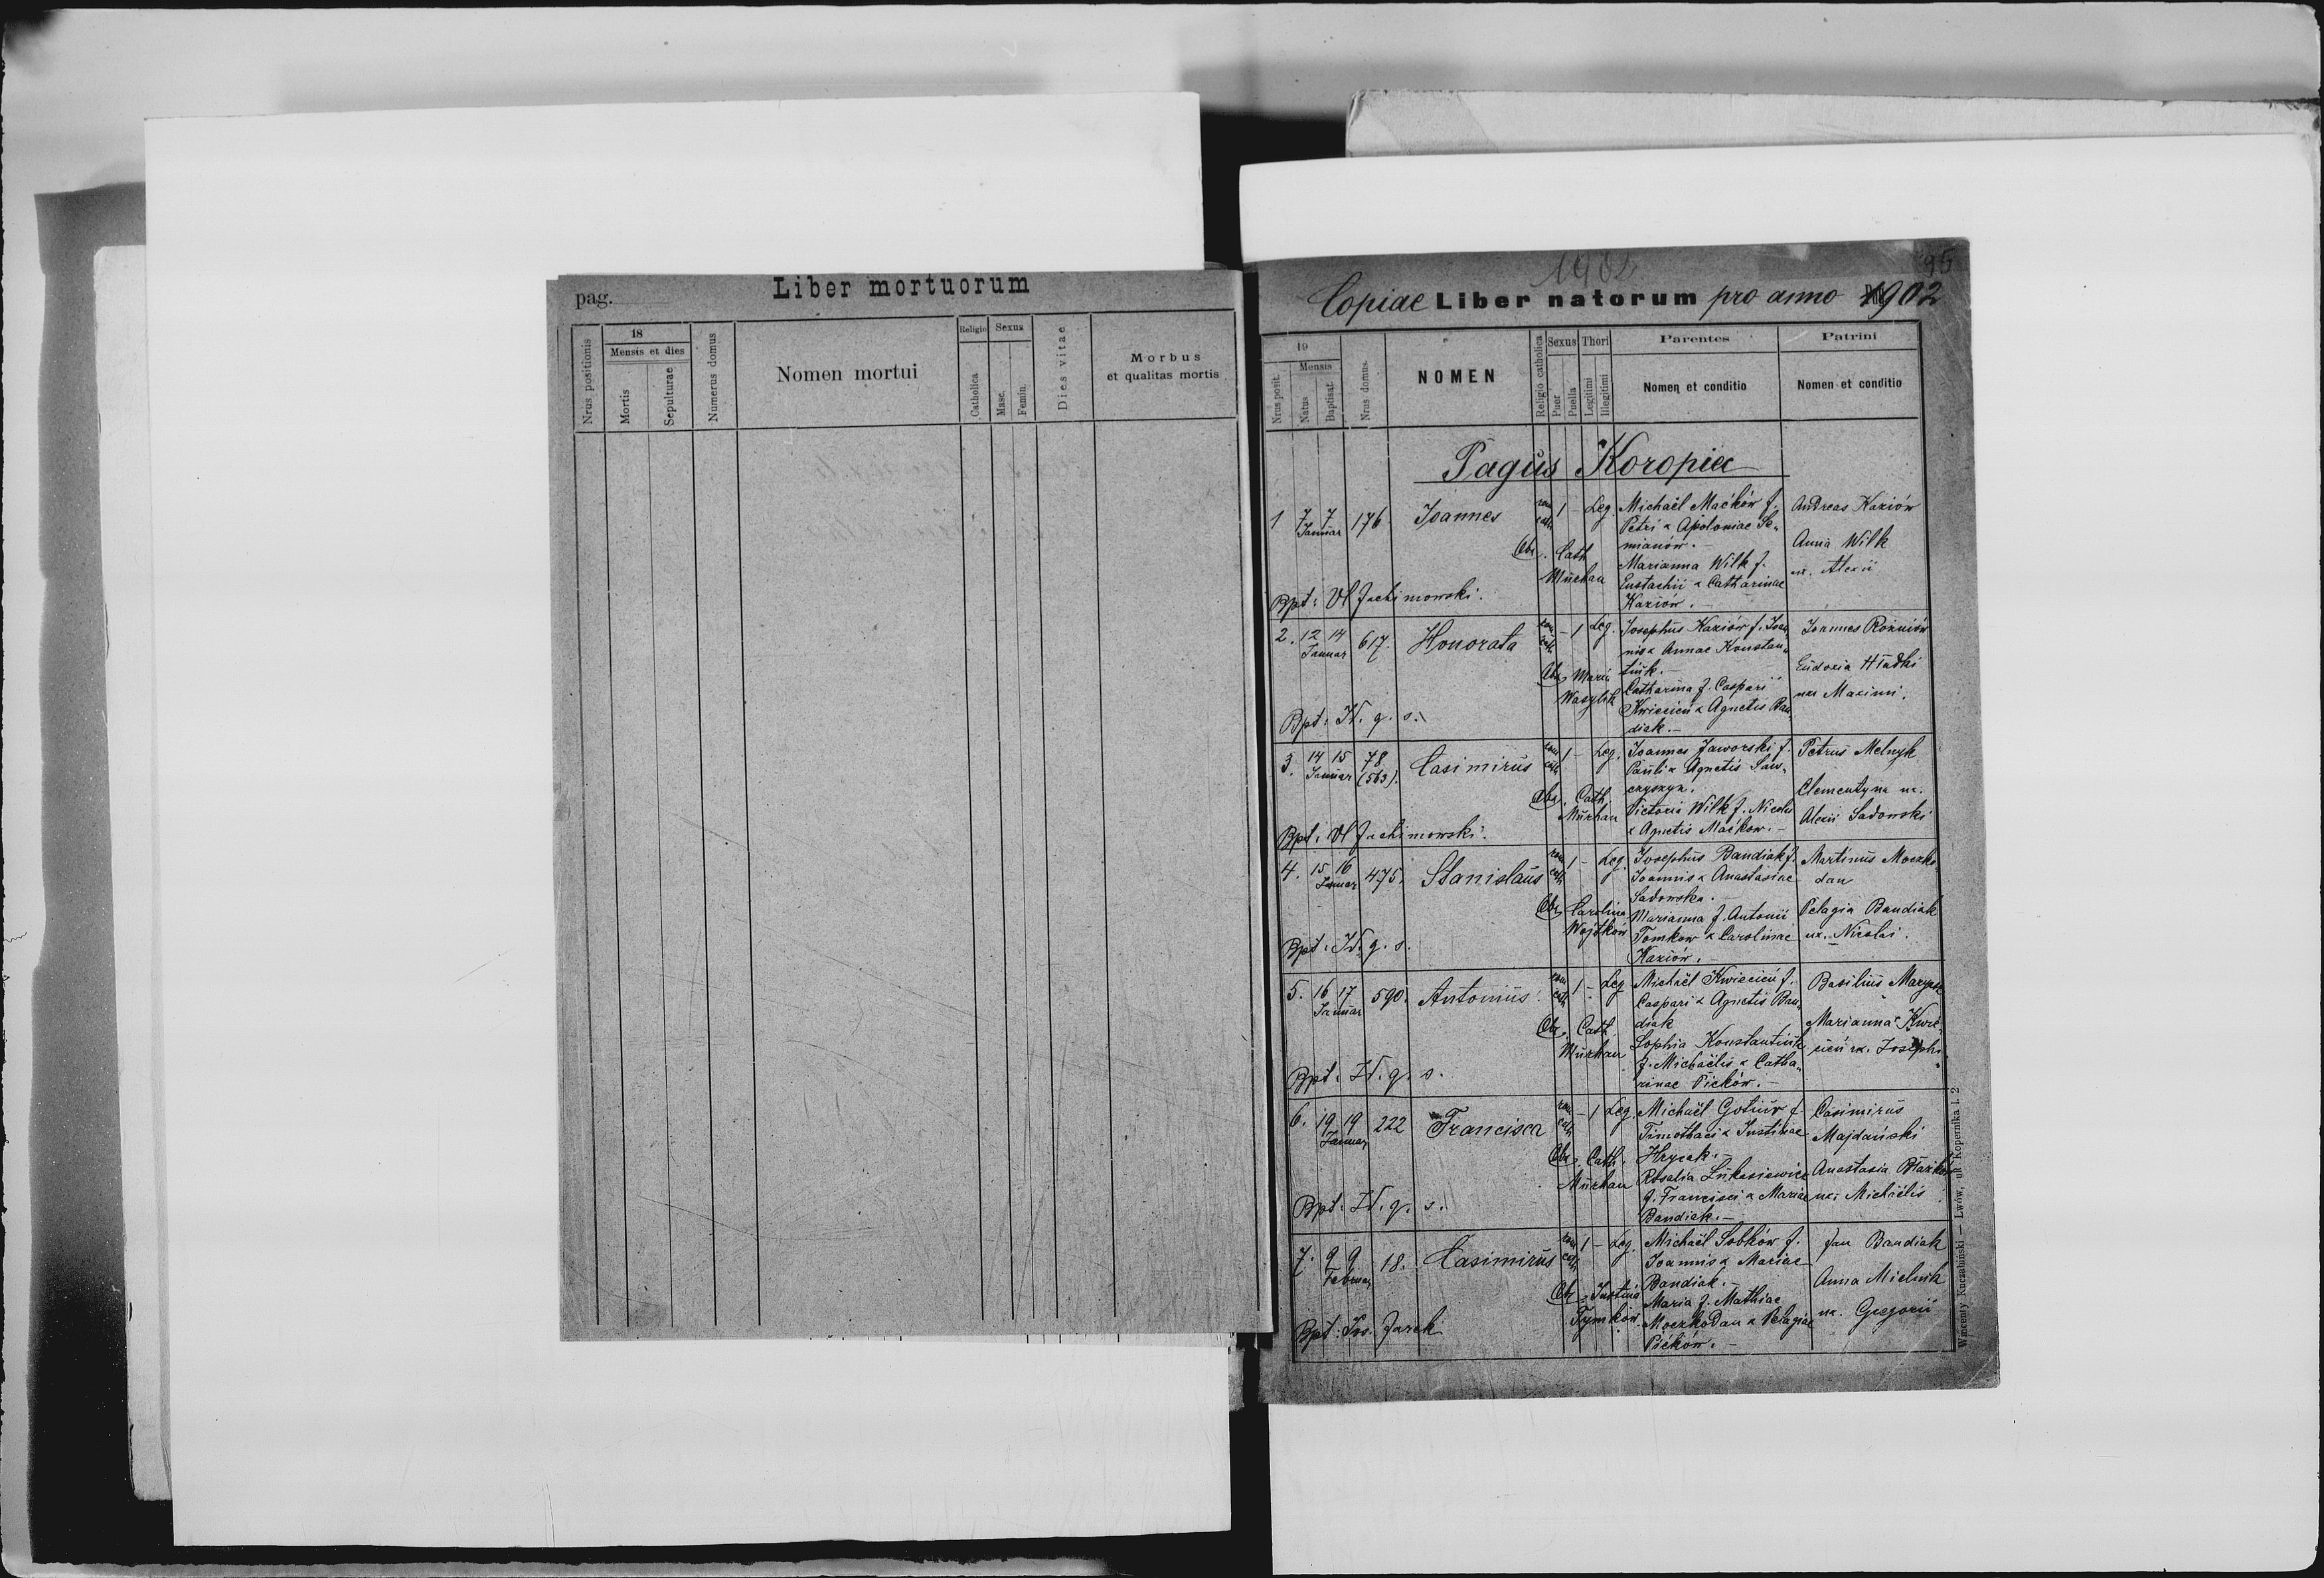 pag.
Liber mortuorum
Nrus positionis
18
Mensis et dies
Mortis
Sepulturae
Numerus domus
Nomen mortui
Religio
Catholica
Sexus
Masc.
Femin.
Dies vitae
Morbus
et qualitas mortis
1902
95
Copiae Liber natorum pro anno 1902
Nrus posit.
19
Mensis
Natus
Baptisat.
Nrus domus.
NOMEN
Religio catholica
Sexus
Puer
Puella
Thori
Legitimi
Illegitimi
Parentes
Nomen et conditio
Patrini
Nomen et conditio
Pagus Koropiec
1 7 7 Januar 176. Joannes rom cath 1 - Leg.
Michaël Maćków f.
Petri & Apoloniae Se„
mianów.
Marianna Wilk f.
Eustachii & Catharinae
Kaziów.
Andreas Kaziów
Anna Wilk
ux. Alexii
Obs. Cath.
Murhau
Bpt: Vl Jachimowski.
2. 12 14 Januar 617. Honorata rom cath - 1 Leg.
Josephus Kaziów f. Joan„
nis & Annae Konstan„
tiuk.
Catharina f. Caspari
Kwiecień & Agnetis Ban„
diak.
Joannes Rożniów
Eudoxia Hładki
ux Maximi.
Obs. Maria
Wasylik
Bpt: Id. q. s.
3. 14 15 Januar 78 (563). Casimirus rom cath 1 - Leg.
Joannes Jaworski f.
Pauli & Agnetis Saw„
czyszyn.
Victoria Wilk f. Nicolai
& Agnetis Maćkow.
Petrus Melnyk
Clementyna ux.
Alexii Sadowski
Obs. Cath.
Murhau
Bpt: Vl Jachimowski.
4. 15 16 Januar 475. Stanislaus rom cath 1 - Leg.
Josephus Bandiak f.
Joannis & Anastasiae
Sadowska.
Marianna f. Antonii
Tomkow & Carolinae
Kaziów.
Martinus Moczko„
dan
Pelagia Bandiak
ux. Nicolai.
Obs. Carolina
Wojtków
Bpt: Id. q. s.
5. 16 17 Januar 590. Antonius rom cath 1 - Leg
Michaël Kwiecień f.
Caspari & Agnetis Ban„
diak
Sophia Konstantiuk
f. Michaëlis & Catha„
rinae Picków.
Basilius
Marianna Kwie„
cień ux. Josephi
Obs. Cath.
Murhau
Bpt: Id. q. s.
6. 19 19 Januar 222 Francisca rom cath - 1 Leg.
Michaël Gotiur f.
Timothaei & Justinae
Hrycak.
Rosalia Łukasiewicz
f. Francisci & Mariae
Bandiak.
Casimirus
Majdański
Anastasia
ux. Michaëlis
Obs. Cath.
Murhau
Bpt: Id. q. s.
7. 9 9 Februar 18. Casimirus rom cath 1 - Leg.
Michaël Sobków f.
Joannis & Mariae
Bandiak.
Maria f. Mathiae
Moczkodan & Pelagiae
Picków.
Jan Bandiak
Anna Mielnik
ux. Gregorii
Obs. Justina
Tymków
Bpt: Jos. Jarek
Wincenty Kuczabiński — Lwów, ul. Kopernika l. 2